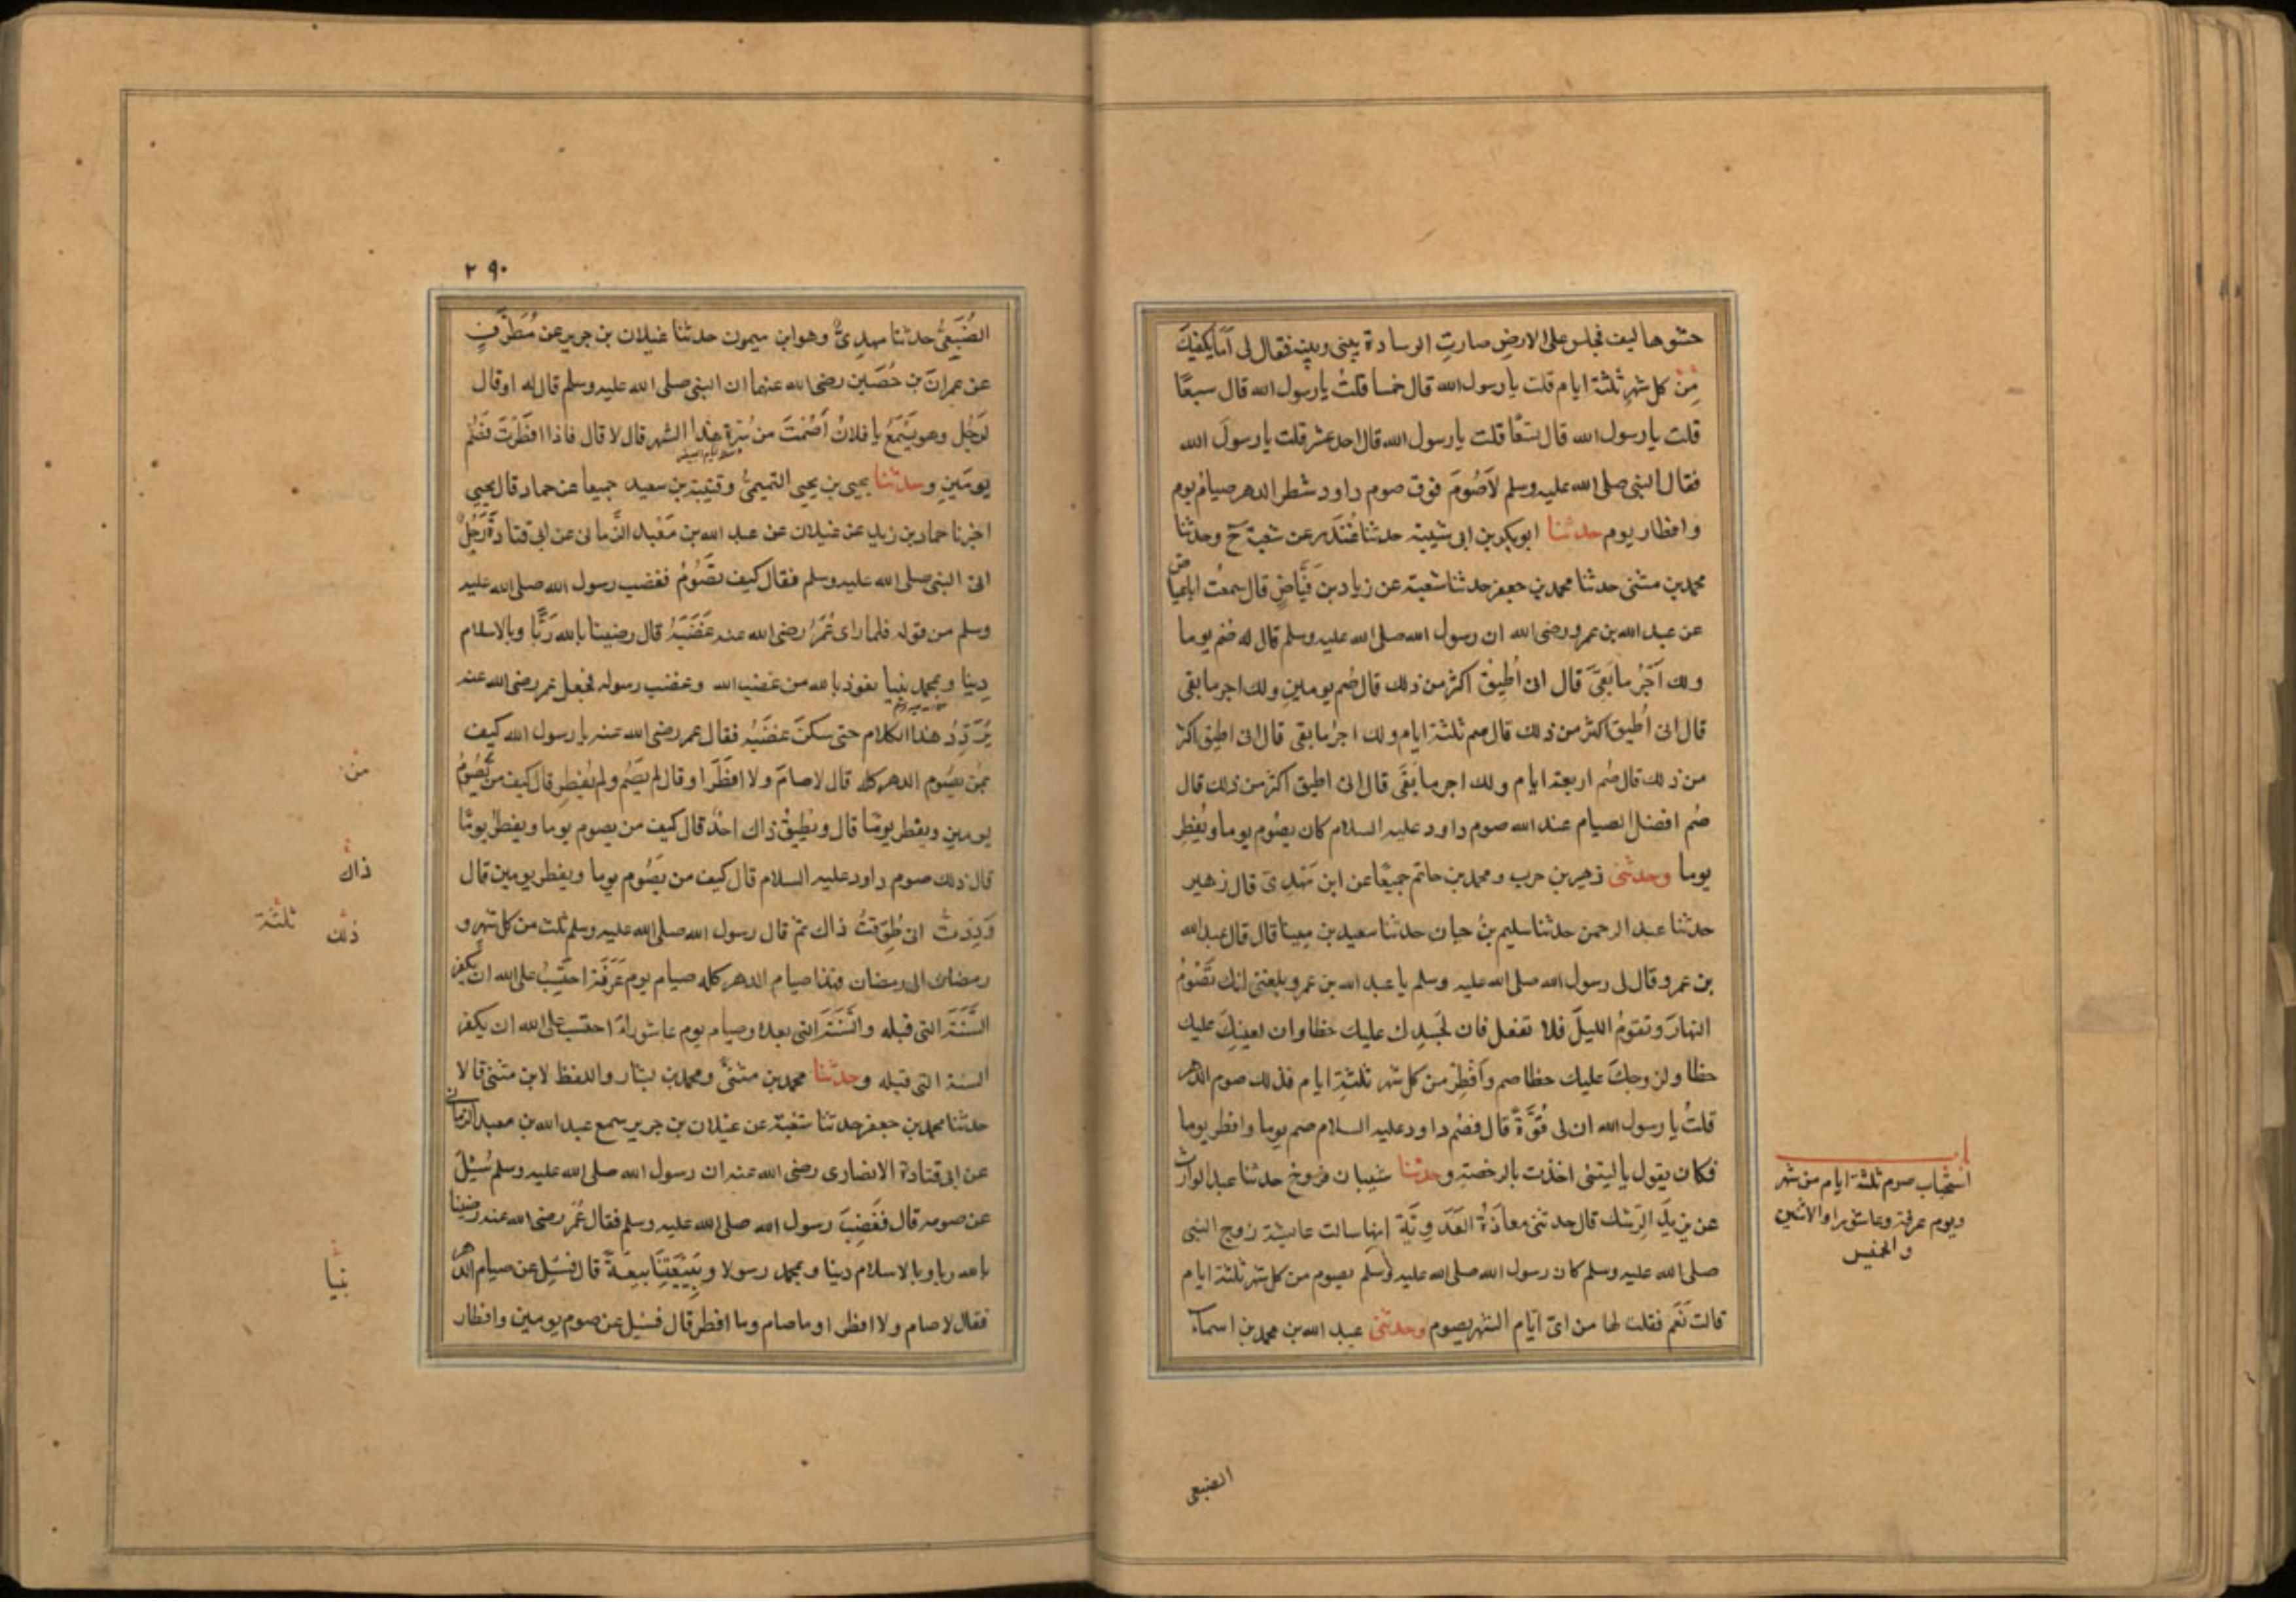 حشوها ليف فجلس على الارض صارت الوسادة بيني وبينه فقال لى اما يكفيك
من كل شهر ثلثة ايام قلت يا رسول الله قال خمسا قلت يا رسول الله قال سبعا
قلت يا رسول الله قال تسعا قلت يا رسول الله قال احد عشر قلت يا رسول الله
فقال النبى صلى الله عليه وسلم لا صوم فوق صوم داود شطر الدهر صيام يوم
وافطار يوم حدثنا ابو بكر بن ابى شيبة حدثنا غندر عن شعبة ح وحدثنا
محمد بن مثنى حدثنا محمد بن جعفر حدثنا شعبة عن زياد بن فياض قال سمعت ابا عياض
عن عبد الله بن عمرو رضى الله ان رسول الله صلى الله عليه وسلم قال له صم يوما
ولك اجر ما بقى قال انى اطيق اكثر من ذلك قال صم يومين ولك اجر ما بقى
قال انى اطيق اكثر من ذلك قال صم ثلثة ايام ولك اجر ما بقى قال انى اطيق اكثر
من ذلك قال صم اربعة ايام ولك اجر ما بقى قال انى اطيق اكثر من ذلك قال
صم افضل الصيام عند الله صوم داود عليه السلام كان يصوم يوما ويفطر
يوما وحدثنى زهير بن حرب ومحمد بن حاتم جميعا عن ابن مهدى قال زهير
حدثنا عبد الرحمن حدثنا سليم بن حيان حدثنا سعيد بن مينا قال قال عبد الله
بن عمرو قال لى رسول الله صلى الله عليه وسلم يا عبد الله بن عمرو بلغنى انك تصوم
النهار وتقوم الليل فلا تفعل فان لجسدك عليك حظا وان لعينك عليك
حظا ولزوجك عليك حظا صم وافطر من كل شهر ثلثة ايام فذلك صوم الدهر
قلت يا رسول الله ان لى قوة قال فصم داود عليه السلام صم يوما وافطر يوما
فكان يقول يا ليتنى اخذت بالرخصة وحدثنا شيبان فروخ حدثنا عبد الوارث
عن يزيد الرشك قال حدثتنى معاذة العدوية انها سالت عايشة زوج النبى
صلى الله عليه وسلم كان رسول الله صلى الله عليه وسلم يصوم من كل شهر ثلثة ايام
قالت نعم فقلت لها من اى ايام الشهر يصوم وحدثنى عبد الله بن محمد بن اسماء
استحباب صوم ثلثة ايام من شهر
ويوم عرفة وعاشورا والاثنين
والخميس
الضبعى
٢٩٠
الضبعى حدثنا مهدى وهو ابن ميمون حدثنا غيلان بن جرير عن مطرف
عن عمران بن حصين رضى الله عنهما ان النبى صلى الله عليه وسلم قال له او قال
لرجل وهو يسمع يا فلان اصمت من سرة هذا الشهر قال لا قال فاذا افطرت فصم
يومين وحدثنا يحيى بن يحيى التميمى وقتيبة بن سعيد جميعا عن حماد قال يحيى
اخبرنا حماد بن زيد عن غيلان عن عبد الله بن معبد الزمانى عن ابى قتادة رجل
اتى النبى صلى الله عليه وسلم فقال كيف تصوم فغضب رسول الله صلى الله عليه
وسلم من قوله فلما راى عمر رضى الله عنه غضبه قال رضينا بالله ربا وبالاسلام
دينا وبمحمد نبيا نعوذ بالله من غضب الله وغضب رسوله فجعل عمر رضى الله عنه
يردد هذا الكلام حتى سكن غضبه فقال عمر رضى الله عنه يا رسول الله كيف
بمن يصوم الدهر كله قال لا صام ولا افطر او قال لم يصم ولم يفطر قال كيف من يصوم
يومين ويفطر يوما قال ويطيق ذاك احد قال كيف من يصوم يوما ويفطر يوما
قال ذلك صوم داود عليه السلام قال كيف من يصوم يوما ويفطر يومين قال
وددت انى طوقت ذاك ثم قال رسول الله صلى الله عليه وسلم ثلث من كل شهر و
رمضان الى رمضان فهذا صيام الدهر كله صيام يوم عرفة احتسب على الله ان يكفر
السنة التى قبله والسنة التى بعده وصيام يوم عاشوراء احتسب على الله ان يكفر
السنة التى قبله وحدثنا محمد بن مثنى ومحمد بن بشار واللفظ لابن مثنى قالا
حدثنا محمد بن جعفر حدثنا شعبة عن غيلان بن جرير سمع عبد الله بن معبد الزمانى
عن ابى قتادة الانصارى رضى الله عنه ان رسول الله صلى الله عليه وسلم سئل
عن صومه قال فغضب رسول الله صلى الله عليه وسلم فقال عمر رضى الله عنه رضينا
بالله ربا وبالاسلام دينا وبمحمد رسولا وببيعتنا بيعة قال فسئل عن صيام الدهر
فقال لا صام ولا افطر او ما صام وما افطر قال فسئل عن صوم يومين وافطار
من
ذاك
ذلك ثلثة
نبيا